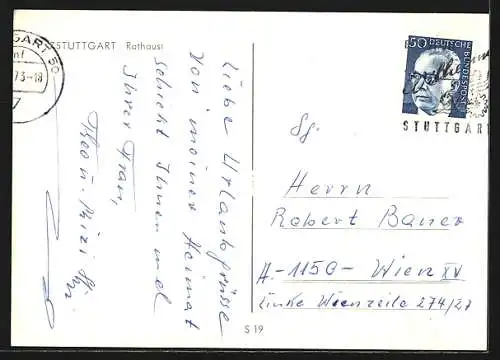 STUTTGART Rathaus
Liebe Urlaubsgrüsse
von meiner Heimat
schickt Ihnen und
Ihrer Frau,
Theo u.
GART 50
73-18
50 DEUTSCHE
BUNDESPOST
STUTTGART
Sg.
Herrn
Robert Bauer
A.-1150- Wien XV
Linke Wienzeile 274/27
S 19